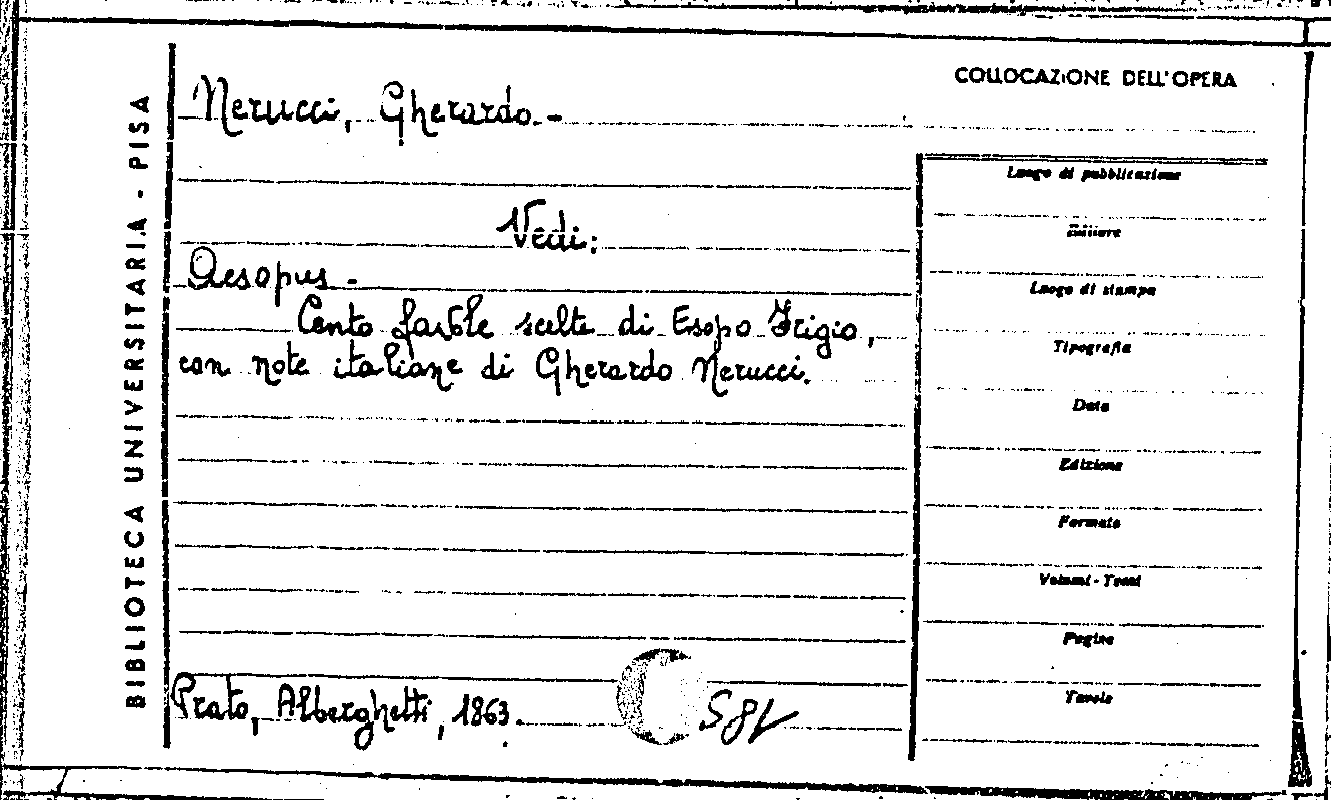 COLLOCAZIONE DELL'OPERA
BIBLIOTECA UNIVERSITARIA - PISA
Nerucci, Gherardo. -
Vedi:
Aesopus -
Cento favole scelte di Esopo Frigio,
con note italiane di Gherardo Nerucci.
Prato, Alberghetti, 1863.
Luogo di pubblicazione
Editore
Luogo di stampa
Tipografia
Data
Edizione
Formato
Volumi - Tomi
Pagine
Tavole